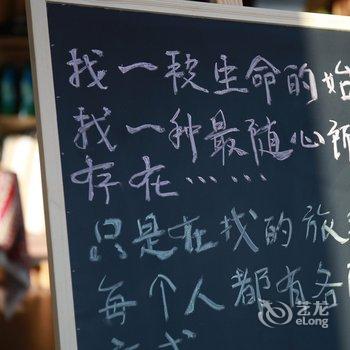 找一段生命的始
找一种最随心所
存在……
只是在找的旅
每个人都有各
方式
艺龙
eLong